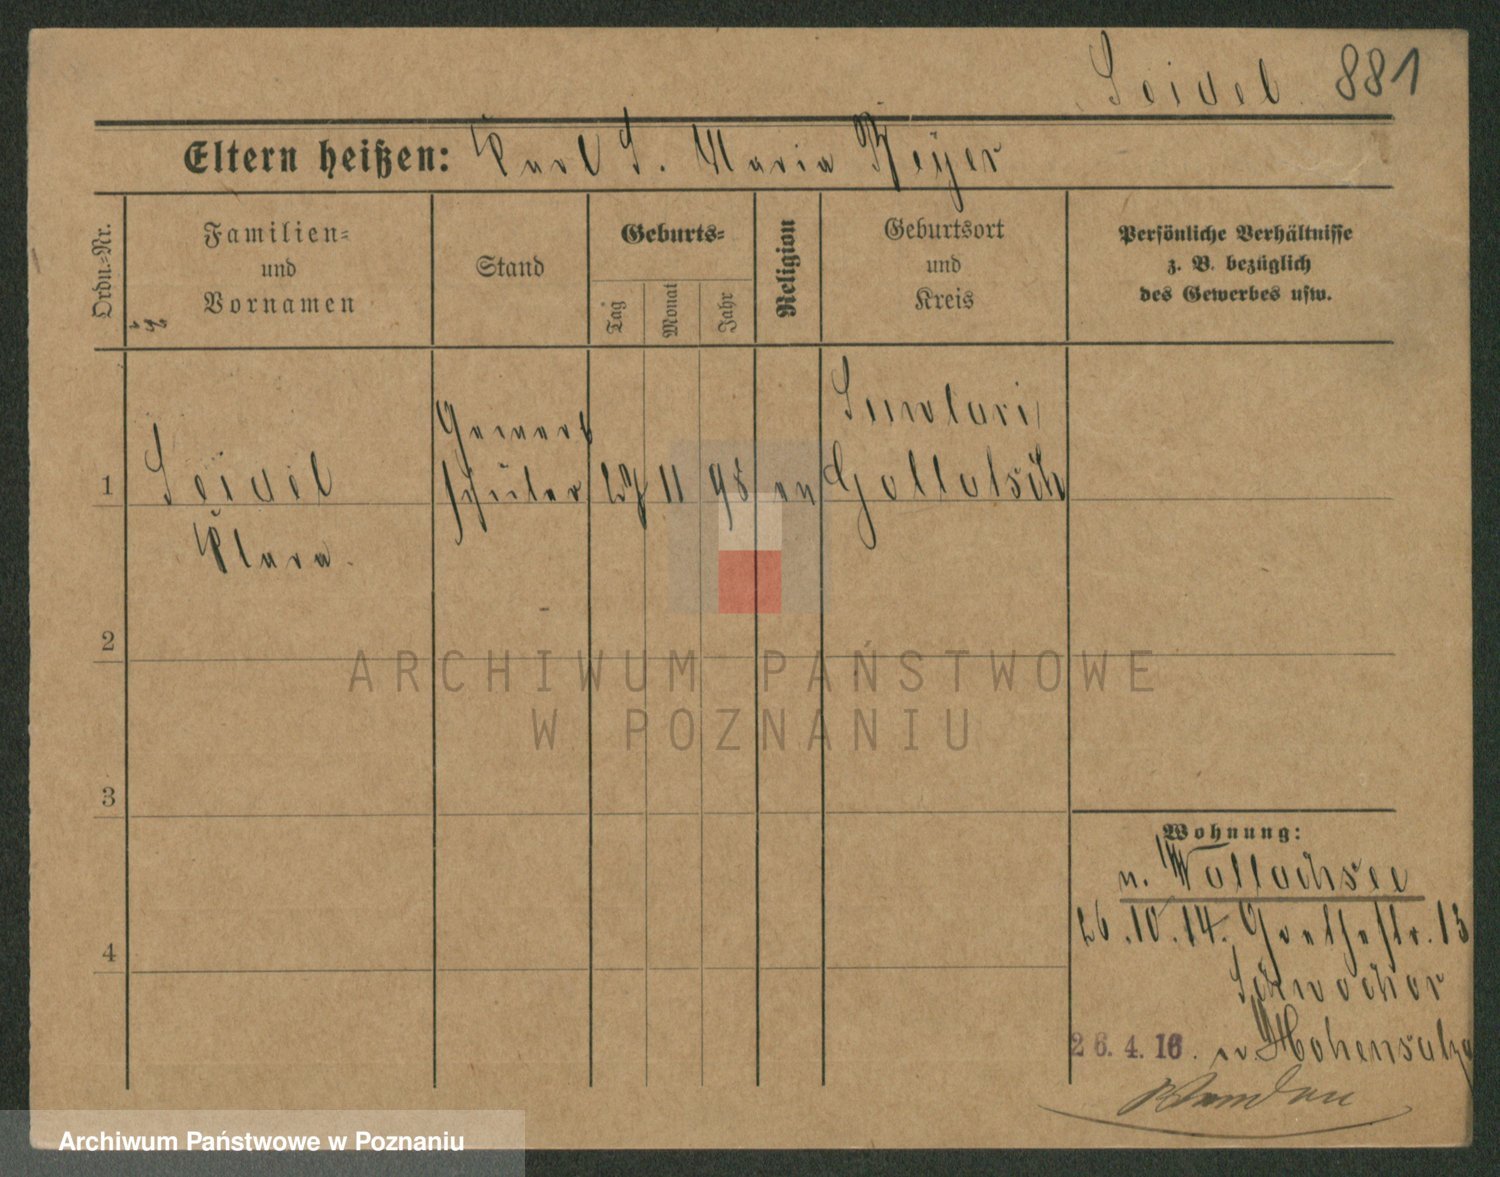 Seidel 881
Eltern heißen: Karl S. Maria Beyer
Ordn.-Nr.
Familien-
und
Vornamen
Stand
Geburts-
Tag
Monat
Jahr
Religion
Geburtsort
und
Kreis
Persönliche Verhältnisse
z. B. bezüglich
des Gewerbes usw.
1
Seidel
Klara.
Gewerb
schüler
27 11 95 ev
Gollatsch
2
3
4
Wohnung:
v. Wollachsee
26.10.14. Goethestr. 13
26.4.16. n. Hohensalza
ARCHIWUM PAŃSTWOWE
W POZNANIU
Archiwum Państwowe w Poznaniu